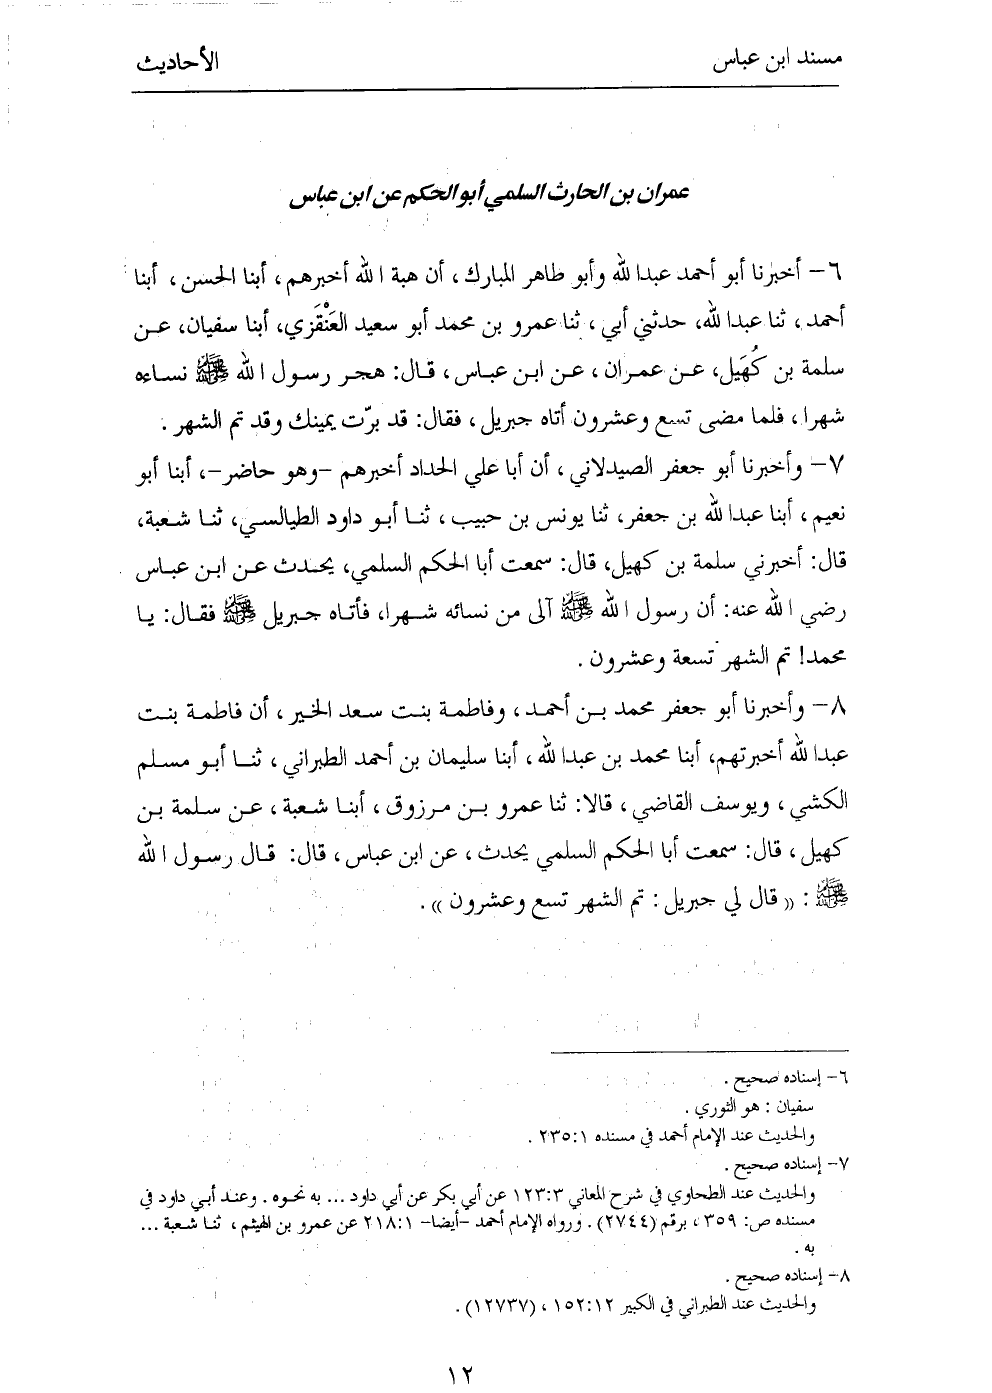 مسند ابن عباس
الأحاديث
عمران بن الحارث السلمي أبو الحكم عن ابن عباس
٦- أخبرنا أبو أحمد عبدالله وأبو طاهر المبارك، أن هبة الله أخبرهم، أبنا الحسن، أبنا
أحمد، ثنا عبدالله، حدثني أبي، ثنا عمرو بن محمد أبو سعيد العَنْقَزي، أبنا سفيان، عن
سلمة بن كُهَيل، عن عمران، عن ابن عباس، قال: هجر رسول الله ﷺ نساءه
شهرا، فلما مضى تسع وعشرون أتاه جبريل، فقال: قد برّت يمينك وقد تم الشهر.
٧- وأخبرنا أبو جعفر الصيدلاني، أن أبا علي الحداد أخبرهم -وهو حاضر-، أبنا أبو
نعيم، أبنا عبدالله بن جعفر، ثنا يونس بن حبيب، ثنا أبو داود الطيالسي، ثنا شعبة،
قال: أخبرني سلمة بن كهيل، قال: سمعت أبا الحكم السلمي، يحدث عن ابن عباس
رضي الله عنه: أن رسول الله ﷺ آلى من نسائه شهرا، فأتاه جبريل ﷺ فقال: يا
محمد! تم الشهر تسعة وعشرون.
٨- وأخبرنا أبو جعفر محمد بن أحمد، وفاطمة بنت سعد الخير، أن فاطمة بنت
عبدالله أخبرتهم، أبنا محمد بن عبدالله، أبنا سليمان بن أحمد الطبراني، ثنا أبو مسلم
الكشي، ويوسف القاضي، قالا: ثنا عمرو بن مرزوق، أبنا شعبة، عن سلمة بن
كهيل، قال: سمعت أبا الحكم السلمي يحدث، عن ابن عباس، قال: قال رسول الله
ﷺ: «قال لي جبريل: تم الشهر تسع وعشرون».
٦- إسناده صحيح.
سفيان: هو الثوري.
والحديث عند الإمام أحمد في مسنده ٢٣٥:١.
٧- إسناده صحيح.
والحديث عند الطحاوي في شرح المعاني ١٢٣:٣ عن أبي بكر عن أبي داود ... به نحوه. وعند أبي داود في
مسنده ص: ٣٥٩، برقم (٢٧٤٤). ورواه الإمام أحمد -أيضا- ٢١٨:١ عن عمرو بن الهيثم، ثنا شعبة ...
به.
٨- إسناده صحيح.
والحديث عند الطبراني في الكبير ١٥٢:١٢، (١٢٧٣٧).
١٢